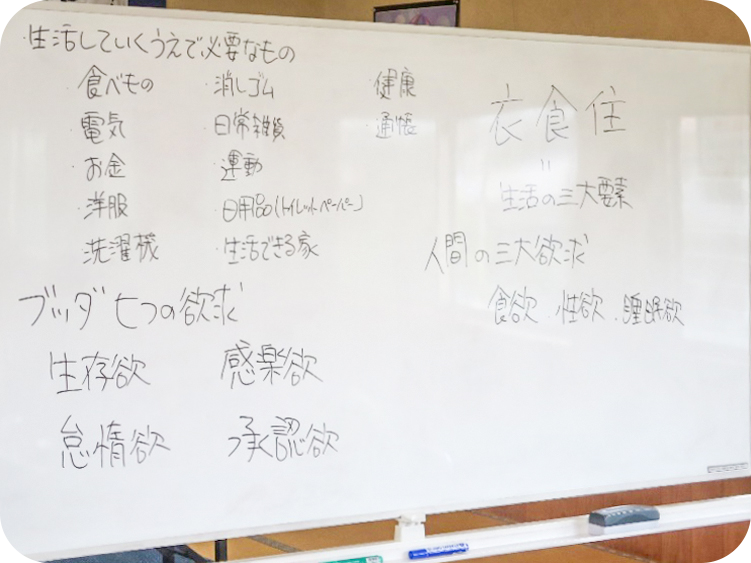 ・生活していくうえで必要なもの
・食べもの ・消しゴム ・健康
・電気 ・日常雑貨 ・通帳
・お金 ・運動
・洋服 ・日用品(トイレットペーパー)
・洗濯機 ・生活できる家
衣食住
=
生活の三大要素
人間の三大欲求
食欲・性欲・睡眠欲
ブッダ 七つの欲求
生存欲 感楽欲
怠惰欲 承認欲